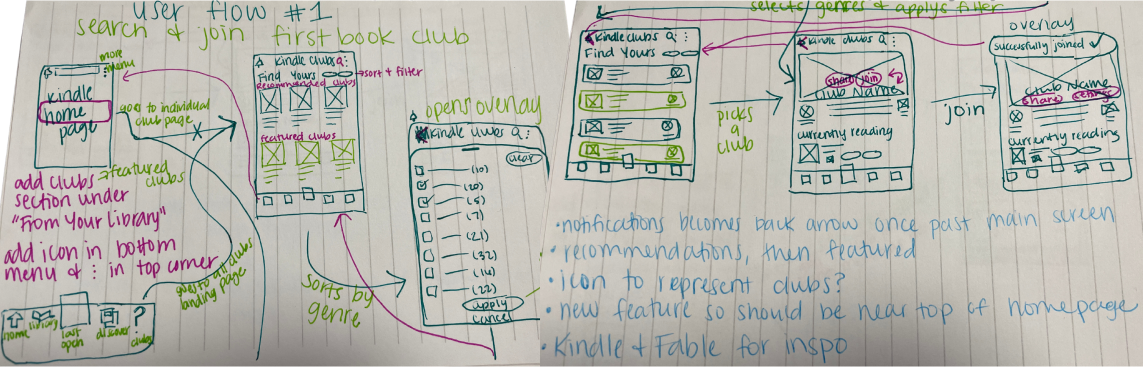 user flow #1
search & join first book club
more menu
kindle
home
page
goes to individual
club page
X
= featured
clubs
add clubs
section under
"From Your Library"
add icon in bottom
menu & : in top corner
goes to all clubs
landing page
home
library
last
open
discover
?
clubs
Kindle Clubs
Find Yours
→ sort & filter
recommended clubs
featured clubs
sorts by
genre
opens overlay
Kindle Clubs
clear
(10)
(20)
(5)
(7)
(21)
(32)
(14)
(22)
apply
cancel
selects genres & applys filter
Kindle Clubs
Find Yours
picks
a
club
Kindle Clubs
share
join
Club Name
currently reading
join
overlay
successfully joined ✓
Club Name
share
settings
currently reading
• notifications becomes back arrow once past main screen
• recommendations, then featured
• icon to represent clubs?
• new feature so should be near top of homepage
• Kindle & Fable for inspo